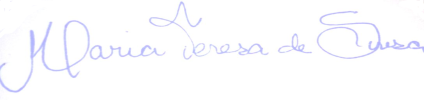 Maria Teresa de Sousa